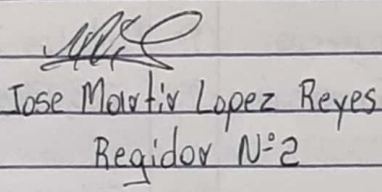 Jose Martir Lopez Reyes
Regidor Nº2